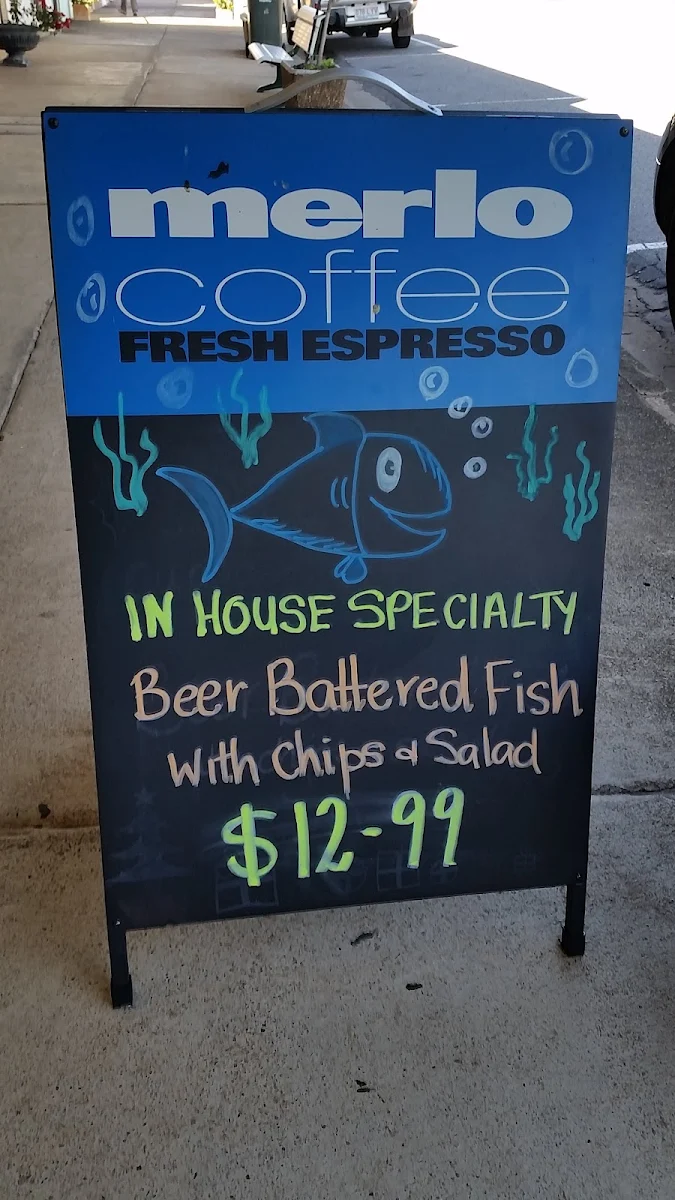 merlo
coffee
FRESH ESPRESSO
IN HOUSE SPECIALTY
Beer Battered Fish
With Chips & Salad
$12-99